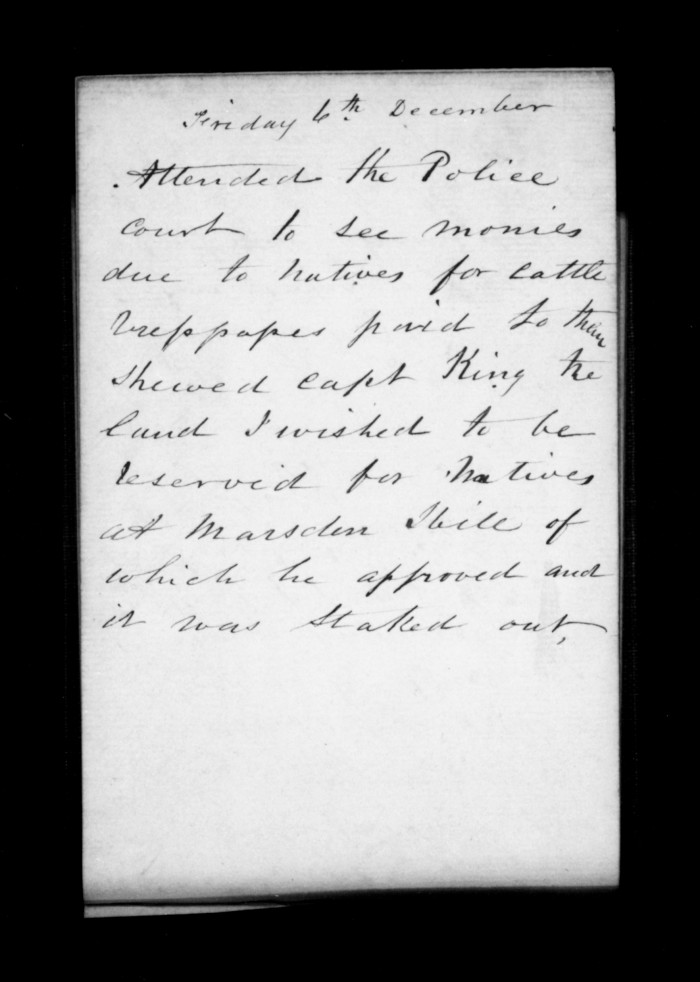 Friday 6th December
Attended the Police
court to see monies
due to natives for cattle
tresspapes paid to them
shewed capt King the
land I wished to be
reservid for natives
at Marsden Hill of
which he approved and
it was staked out,